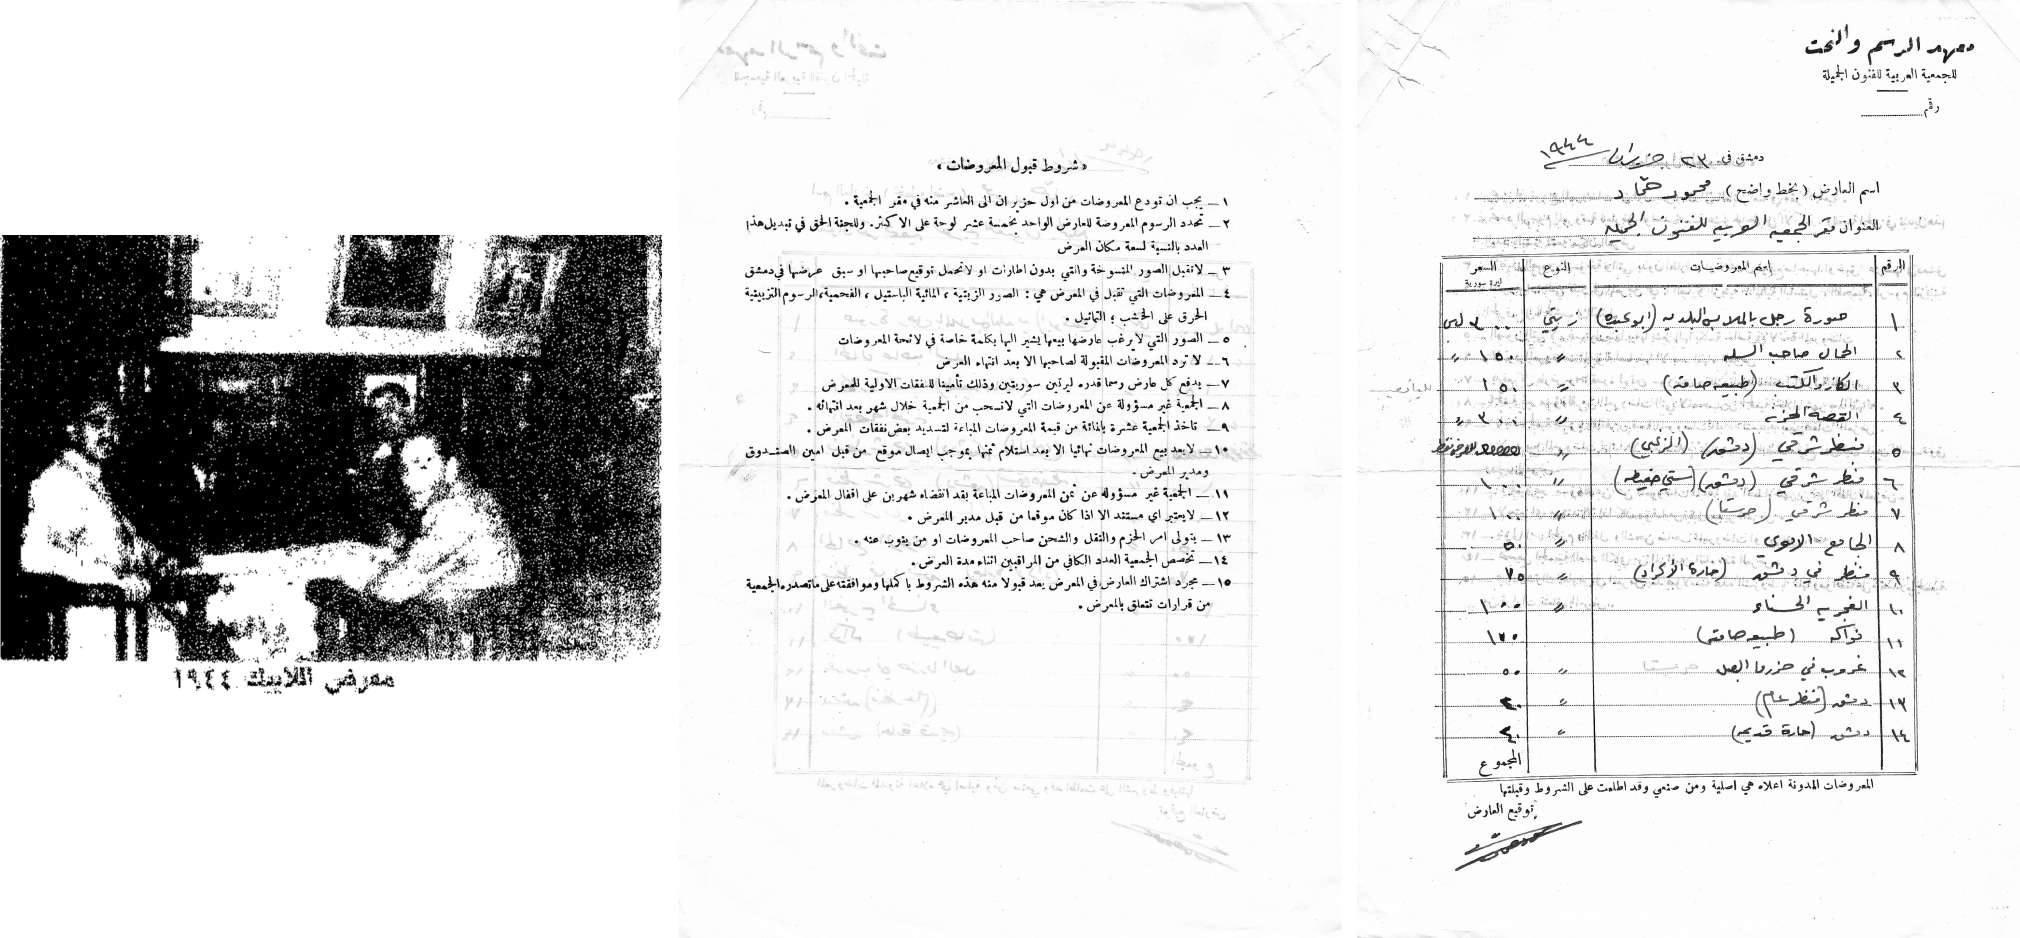 معهد الرسم والنحت
للجمعية العربية للفنون الجميلة
رقم
دمشق في ٢٣ حزيران ١٩٤٤
اسم العارض (بخط واضح) محمود حماد
العنوان مقر الجمعيه العربيه للفنون الجميله
الرقم اسم المعروضات النوع السعر
ليرة سورية
١ صورة رجل بالملابس البلديه (ابو عبده) زيتي ٣٠٠
٢ الحمال صاحب السله " ١٥٠ "
٣ الكمان والكتب (طبيعه صامته) " ١٥٠
٤ القصه المحزنه " ٣٠٠ "
٥ منظر شرقي (دمشق) " للعرض فقط
٦ منظر شرقي (دمشق) (ستي حفيظه) " ١٠٠
٧ منظر شرقي (حرستا) " ١٠٠
٨ الجامع الاموي " ٥٠
٩ منظر في دمشق (حارة الاكراد) " ٧٥
١٠ الغجريه الحسناء " ١٠٠
١١ فواكه (طبيعه صامته) ١٧٥
١٢ غروب في حزرما البصل " ٥٠
١٣ دمشق (منظر عام) "
١٤ دمشق (حارة قديمه) "
المجموع
المعروضات المدونة اعلاه هي اصلية ومن صنعي وقد اطلعت على الشروط وقبلتها
توقيع العارض
«شروط قبول المعروضات»
١ — يجب ان تودع المعروضات من اول حزيران الى العاشر منه في مقر الجمعية .
٢ — تحدد الرسوم المعروضة للعارض الواحد بخمسة عشر لوحة على الاكثر. وللجنة الحق في تبديل هذا
العدد بالنسبة لسعة مكان العرض
٣ — لاتقبل الصور المنسوخة والتي بدون اطارات او لاتحمل توقيع صاحبها او سبق عرضها في دمشق
٤ — المعروضات التي تقبل في المعرض هي : الصور الزيتية ، المائية الباستيل ، الفحمية، الرسوم التزيينية
الحرق على الخشب ؛ التماثيل .
٥ — الصور التي لايرغب عارضها بيعها يشير اليها بكلمة خاصة في لائحة المعروضات
٦ — لا ترد المعروضات المقبولة لصاحبها الا بعد انتهاء العرض
٧ — يدفع كل عارض رسما قدره ليرتين سوريتين وذلك تأمينا للنفقات الاولية للمعرض
٨ — الجمعية غير مسؤولة عن المعروضات التي لاتسحب من الجمعية خلال شهر بعد انتهائه .
٩ — تاخذ الجمعية عشرة بالمائة من قيمة المعروضات المباعة لتسديد بعض نفقات المعرض .
١٠ — لايعد بيع المعروضات نهائيا الا بعد استلام ثمنها بموجب ايصال موقع من قبل امين الصندوق
ومدير المعرض .
١١ — الجمعية غير مسؤولة عن ثمن المعروضات المباعة بعد انقضاء شهرين على اقفال المعرض .
١٢ — لايعتبر اي مستند الا اذا كان موقعا من قبل مدير المعرض .
١٣ — يتولى امر الحزم والنقل والشحن صاحب المعروضات او من ينوب عنه .
١٤ — تخصص الجمعية العدد الكافي من المراقبين اثناء مدة العرض .
١٥ — مجرد اشتراك العارض في المعرض يعد قبولا منه هذه الشروط باكملها وموافقته على ماتصدره الجمعية
من قرارات تتعلق بالمعرض .
معرض اللاييك ١٩٤٤